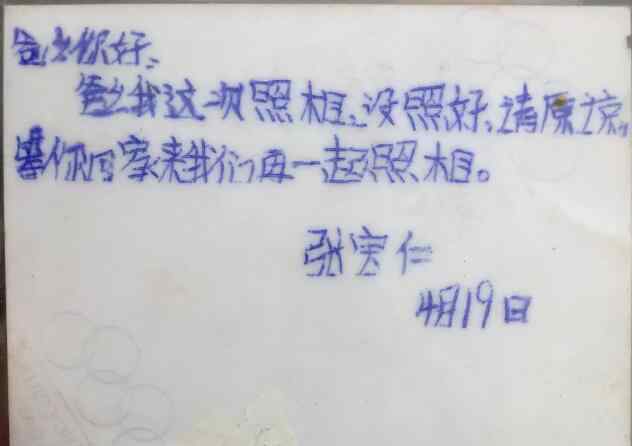 爸你好、
爸我这一次照相、没照好、请原谅。
等你回家来我们再一起照相。
张宝仁
4月19日